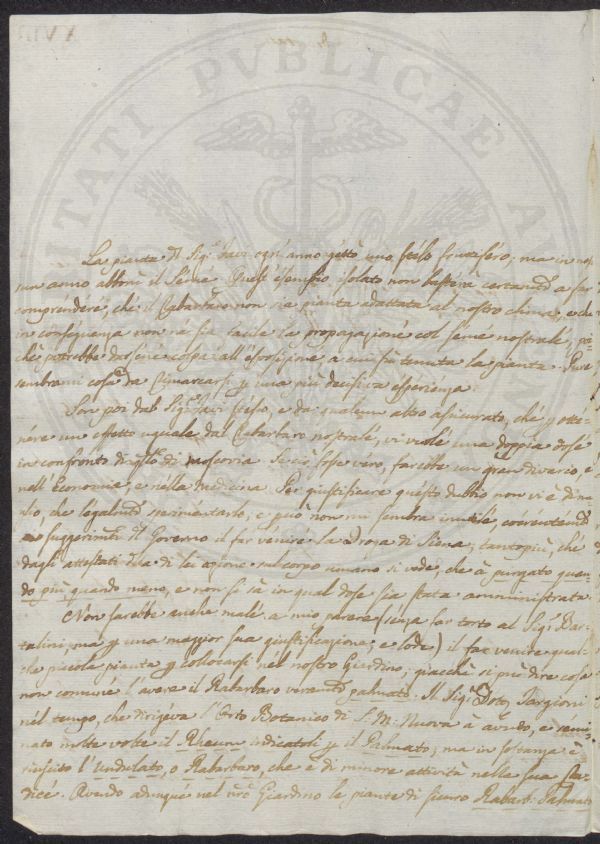 La pianta del Sig.r Savi ogni anno gettò uno stelo fruttifero, ma in nes
sun anno abbonì il Seme. Quest'esempio isolato non basterà certam.te a far
comprendere, che il Rabarbaro non sia pianta adattata al nostro clima, e che
in conseguenza non ne sia facile la propagazione col seme nostrale, poi
chè potrebbe darsene colpa all'esposizione a cui fù tenuta la pianta. Pure
sembrami cosa da rimarcarsi p una più decisiva esperienza.
Son poi dal Sig.r Savi stesso, e da qualcun altro assicurato, che p otte
nere un effetto uguale dal Rabarbaro nostrale, vi vuole una doppia dose
in confronto di quello di Moscovia. Se ciò fosse vero, farebbe un gran divario, e
nell'Economia, e nella Medicina. Per giustificare questo dubbio non vi è di me
glio, che legalm.te sperimentarlo, e però non mi sembra inutile, coerentem.te
a' suggerim.ti del Governo il far venire la Droga di Siena, tanto più, che
dagli attestati della di lei azione sul corpo umano si vede, che à purgato quan
do più quando meno, e non si sà in qual dose sia stata amministrata
Non sarebbe anche male a mio parere (senza far torto al Sig.r Bar
talini, ma p una maggior sua giustificazione, e lode) il far venire qual
che piccola pianta p collocarsi nel nostro Giardino, giacchè si può dire cosa
non comune l'avere il Rabarbaro veram.te palmato. Il Sig.r Dott.r Targioni
nel tempo, che dirigeva l'Orto Botanico di S. M. Nuova à avuto, e semi
nato molte volte il Rheum indicatoli p il Palmato, ma in sostanza è
riuscito l'Undulato, o Rabarbaro, che è di minore attività nella sua Ra
dice. Avendo adunque nel nro Giardino le piante di sicuro Rabarb. Palmato